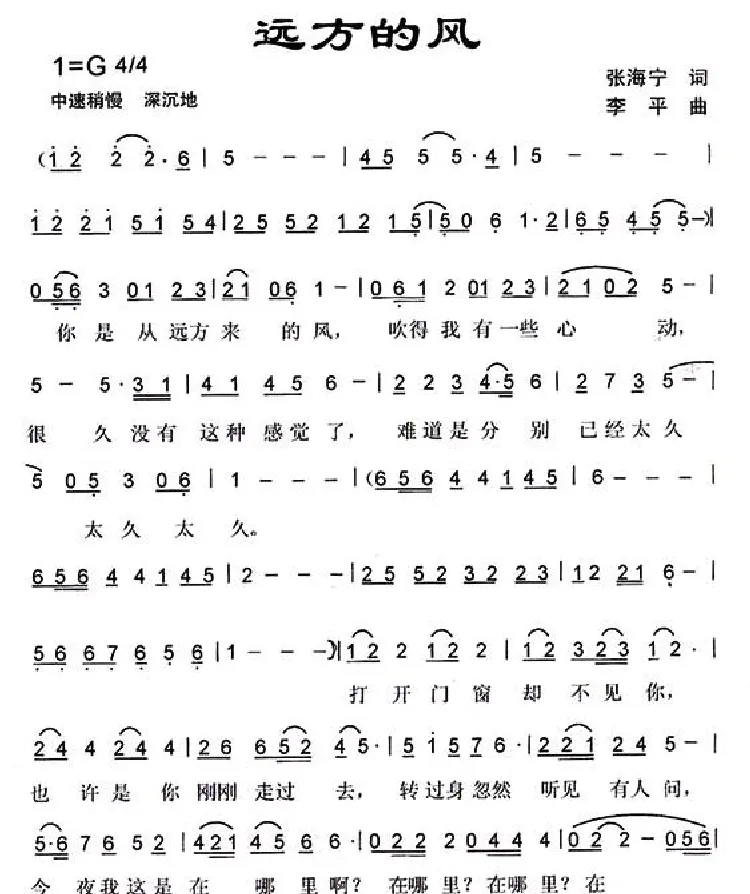 远方的风
1=G 4/4
中速稍慢 深沉地
张海宁 词
李 平 曲
(1 2 2 2· 6 | 5 - - - | 4 5 5 5· 4 | 5 - - - |
1 2 2 1 5 1 5 4 | 2 5 5 2 1 2 1 5 | 5 0 6 1· 2 | 6 5 4 5 5 -) |
0 5 6 3 0 1 2 3 | 2 1 0 6 1 - | 0 6 1 2 0 1 2 3 | 2 1 0 2 5 - |
你 是 从 远方 来 的 风, 吹得 我 有 一些 心 动,
5 - 5· 3 1 | 4 1 4 5 6 - | 2 2 3 4·5 6 | 2 7 3 5 - |
很 久 没有 这种 感觉 了, 难道是 分 别 已经太久
5 0 5 3 0 6 | 1 - - - | (6 5 6 4 4 1 4 5 | 6 - - - |
太 久 太 久。
6 5 6 4 4 1 4 5 | 2 - - - | 2 5 5 2 3 2 2 3 | 1 2 2 1 6 - |
5 6 6 7 6 5 6 | 1 - - -) | 1 2 2 1 2 2 | 1 2 3 2 3 1 2· |
打 开 门 窗 却 不 见 你,
2 4 4 2 4 4 | 2 6 6 5 2 4 5· | 5 1 5 7 6· | 5 2 2 1 2 4 5 - |
也 许 是 你 刚刚 走过 去, 转过身忽然 听见 有人 问,
5·6 7 6 5 2 | 4 2 1 4 5 6 6· | 0 2 2 2 0 4 4 4 | 0 2 2 - 0 5 6 |
今 夜我这是 在 哪 里 啊? 在哪 里? 在哪 里? 在